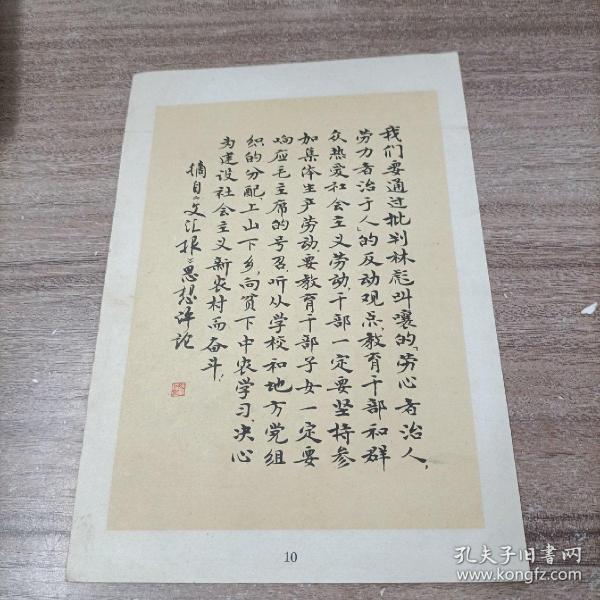 我们要通过批判林彪叫嚷的“劳心者治人，
劳力者治于人”的反动观点，教育干部和群
众热爱社会主义劳动，干部一定要坚持参
加集体生产劳动，要教育干部子女一定要
响应毛主席的号召，听从学校和地方党组
织的分配，上山下乡，向贫下中农学习，决心
为建设社会主义新农村而奋斗！
摘自《文汇报》思想评论
10
孔夫子旧书网
www.kongfz.com